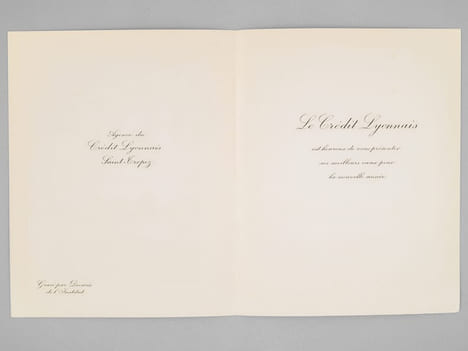 Agence du
Crédit Lyonnais
Saint-Tropez
Gravé par Decaris
de l'Institut
Le Crédit Lyonnais
est heureux de vous présenter
ses meilleurs vœux pour
la nouvelle année